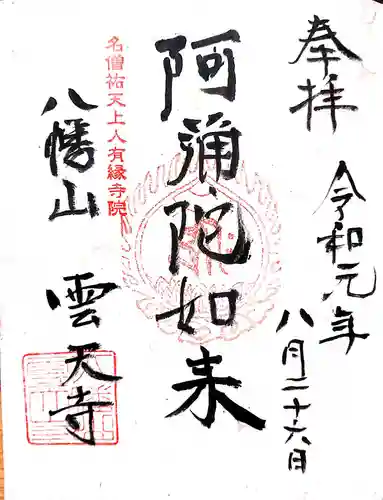 奉拝
令和元年
八月二十六日
阿彌陀如来
名僧祐天上人有縁寺院
八幡山
雲天寺